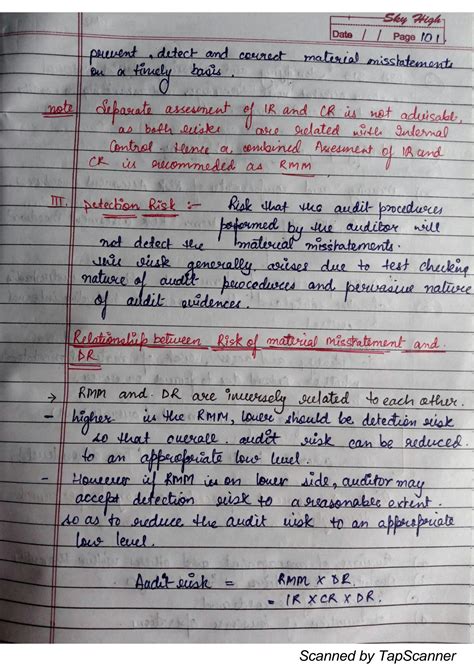 Sky High
Date / / Page 101
prevent, detect and correct material misstatements
on a timely basis.
note Separate assesment of IR and CR is not advisable,
as both risks are related with Internal
Control. Hence a combined Assesment of IR and
CR is recommeded as RMM
III. Detection Risk :- Risk that the audit procedures
performed by the auditor will
not detect the material misstatements.
this risk generally arises due to test checking
nature of audit procedures and pervasive nature
of audit evidences.
Relationship between Risk of material misstatement and
DR
→ RMM and DR are inversely related to each other.
- higher is the RMM, lower should be detection risk
so that overall audit risk can be reduced
to an appropriate low level.
- However if RMM is on lower side, auditor may
accept detection risk to a reasonable extent.
so as to reduce the audit risk to an appropriate
low level.
Audit risk = RMM X DR.
= IR X CR X DR.
Scanned by TapScanner